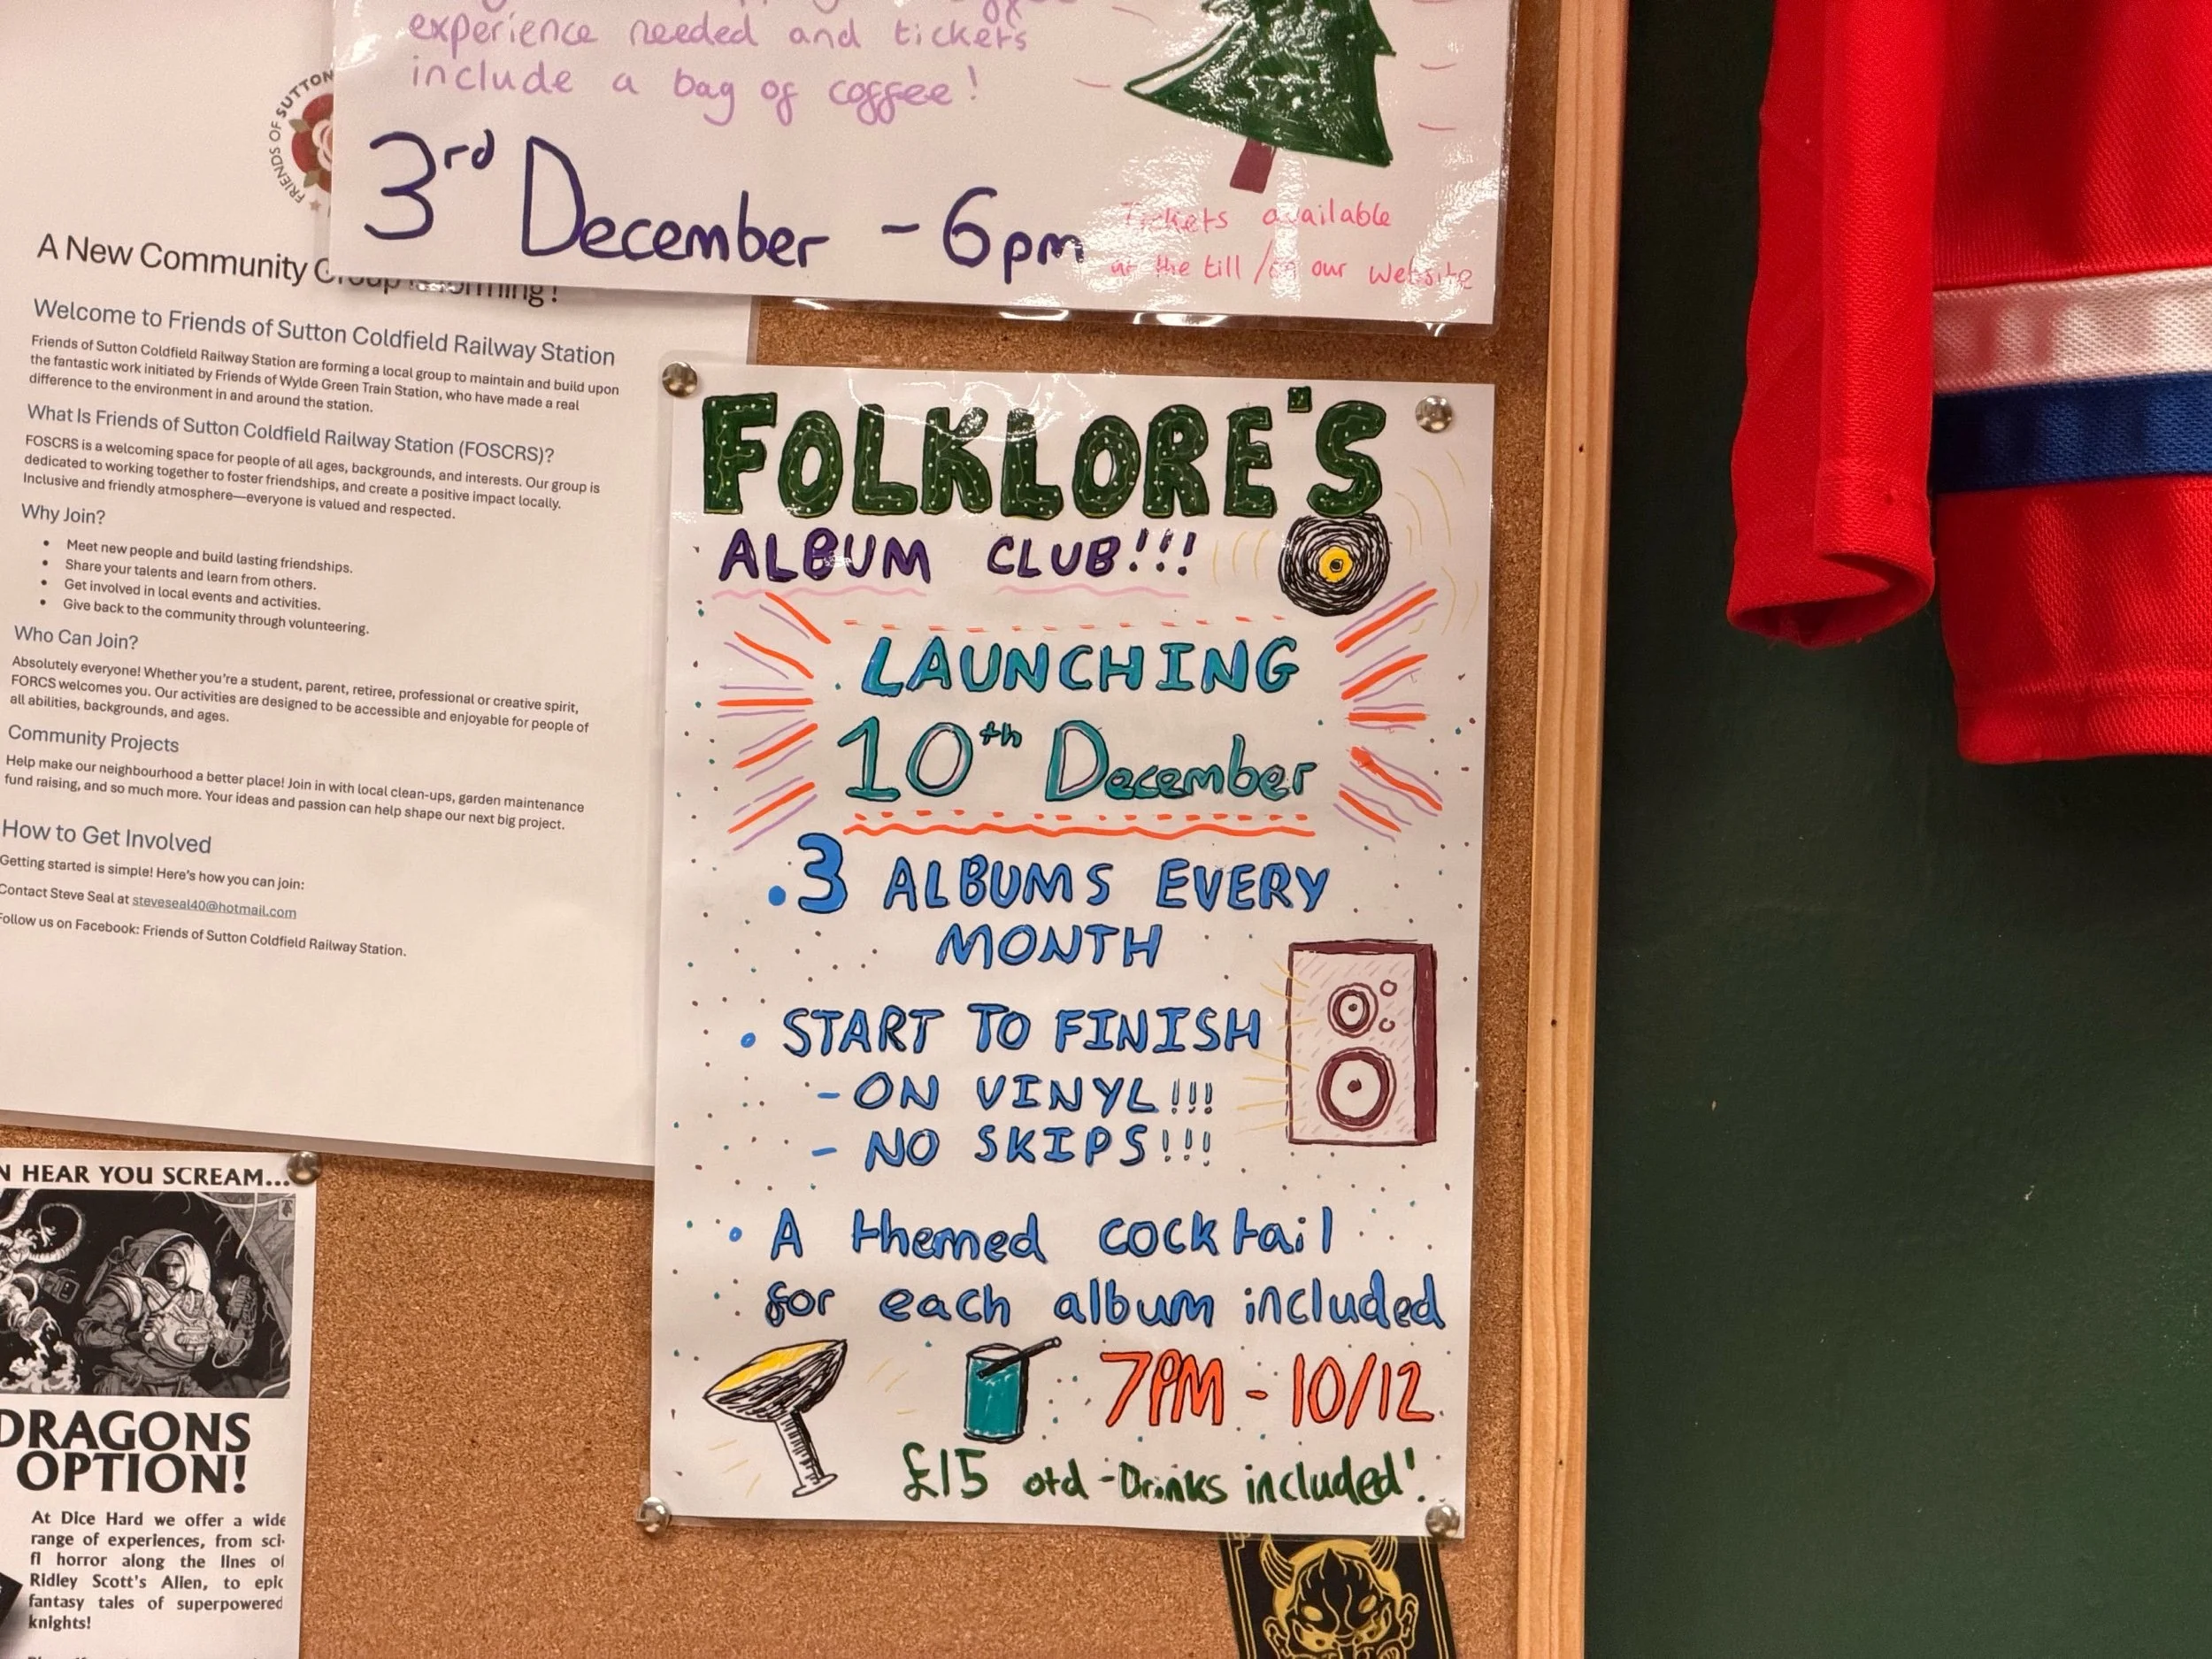 experience needed and tickets
include a bag of coffee!
3rd December - 6pm
Tickets available
at the till / on our website
FRIENDS OF SUTTON
A New Community Group is forming!
Welcome to Friends of Sutton Coldfield Railway Station
Friends of Sutton Coldfield Railway Station are forming a local group to maintain and build upon
the fantastic work initiated by Friends of Wylde Green Train Station, who have made a real
difference to the environment in and around the station.
What Is Friends of Sutton Coldfield Railway Station (FOSCRS)?
FOSCRS is a welcoming space for people of all ages, backgrounds, and interests. Our group is
dedicated to working together to foster friendships, and create a positive impact locally.
Inclusive and friendly atmosphere—everyone is valued and respected.
Why Join?
• Meet new people and build lasting friendships.
• Share your talents and learn from others.
• Get involved in local events and activities.
• Give back to the community through volunteering.
Who Can Join?
Absolutely everyone! Whether you're a student, parent, retiree, professional or creative spirit,
FORCS welcomes you. Our activities are designed to be accessible and enjoyable for people of
all abilities, backgrounds, and ages.
Community Projects
Help make our neighbourhood a better place! Join in with local clean-ups, garden maintenance
fund raising, and so much more. Your ideas and passion can help shape our next big project.
How to Get Involved
Getting started is simple! Here's how you can join:
Contact Steve Seal at steveseal40@hotmail.com
Follow us on Facebook: Friends of Sutton Coldfield Railway Station.
FOLKLORE'S
ALBUM CLUB!!!
LAUNCHING
10th December
• 3 ALBUMS EVERY
MONTH
• START TO FINISH
- ON VINYL!!!
- NO SKIPS!!!
• A themed cocktail
for each album included
7PM - 10/12
£15 otd - Drinks included!
HEAR YOU SCREAM...
DRAGONS
OPTION!
At Dice Hard we offer a wide
range of experiences, from sci-
fi horror along the lines of
Ridley Scott's Alien, to epic
fantasy tales of superpowered
knights!